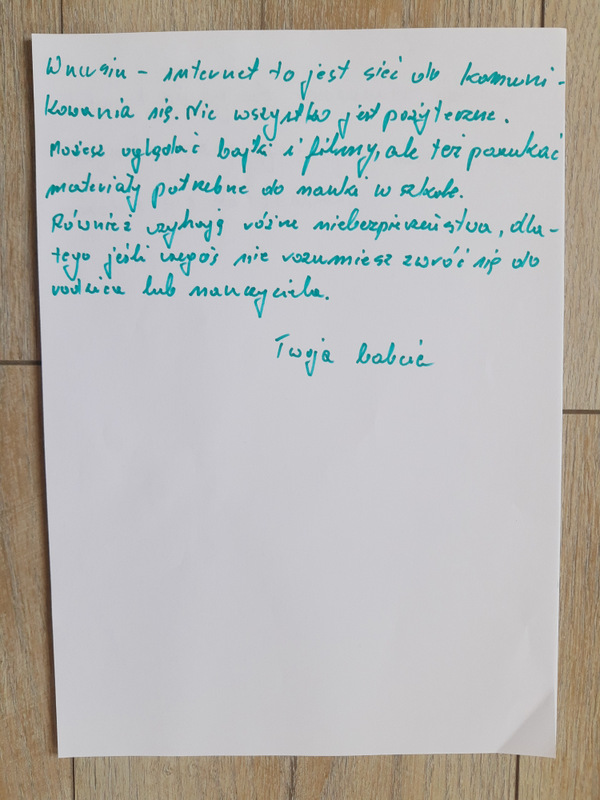 Wnusiu - internet to jest sieć do komuni-
kowania się. Nie wszystko jest pożyteczne.
Możesz oglądać bajki i filmy, ale też poszukać
materiały potrzebne do nauki w szkole.
Również czyhają różne niebezpieczeństwa, dla-
tego jeśli czegoś nie rozumiesz zwróć się do
rodzica lub nauczyciela.
Twoja babcia